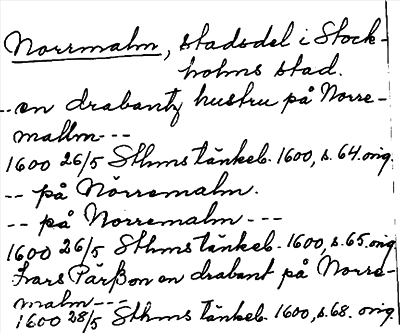 Norrmalm, stadsdel i Stock-
holms stad.
--en drabantz hustru på Norre-
mallm---
1600 26/5 Sthms tänkeb. 1600, s. 64. orig.
-- på Nörremalm.
-- på Norremalm ---
1600 26/5 Sthms tänkeb. 1600, s. 65. orig.
Lars Pärßon en drabant på Norre-
malm---
1600 28/5 Sthms tänkeb. 1600, s. 68. orig.